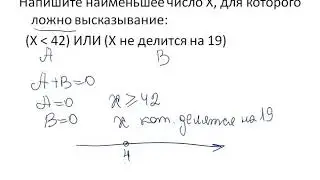 Напишите наименьшее число X, для которого
ложно высказывание:
(X < 42) ИЛИ (X не делится на 19)
A B
A+B=0
A=0 x ⩾ 42
B=0 x кот. делятся на 19
4